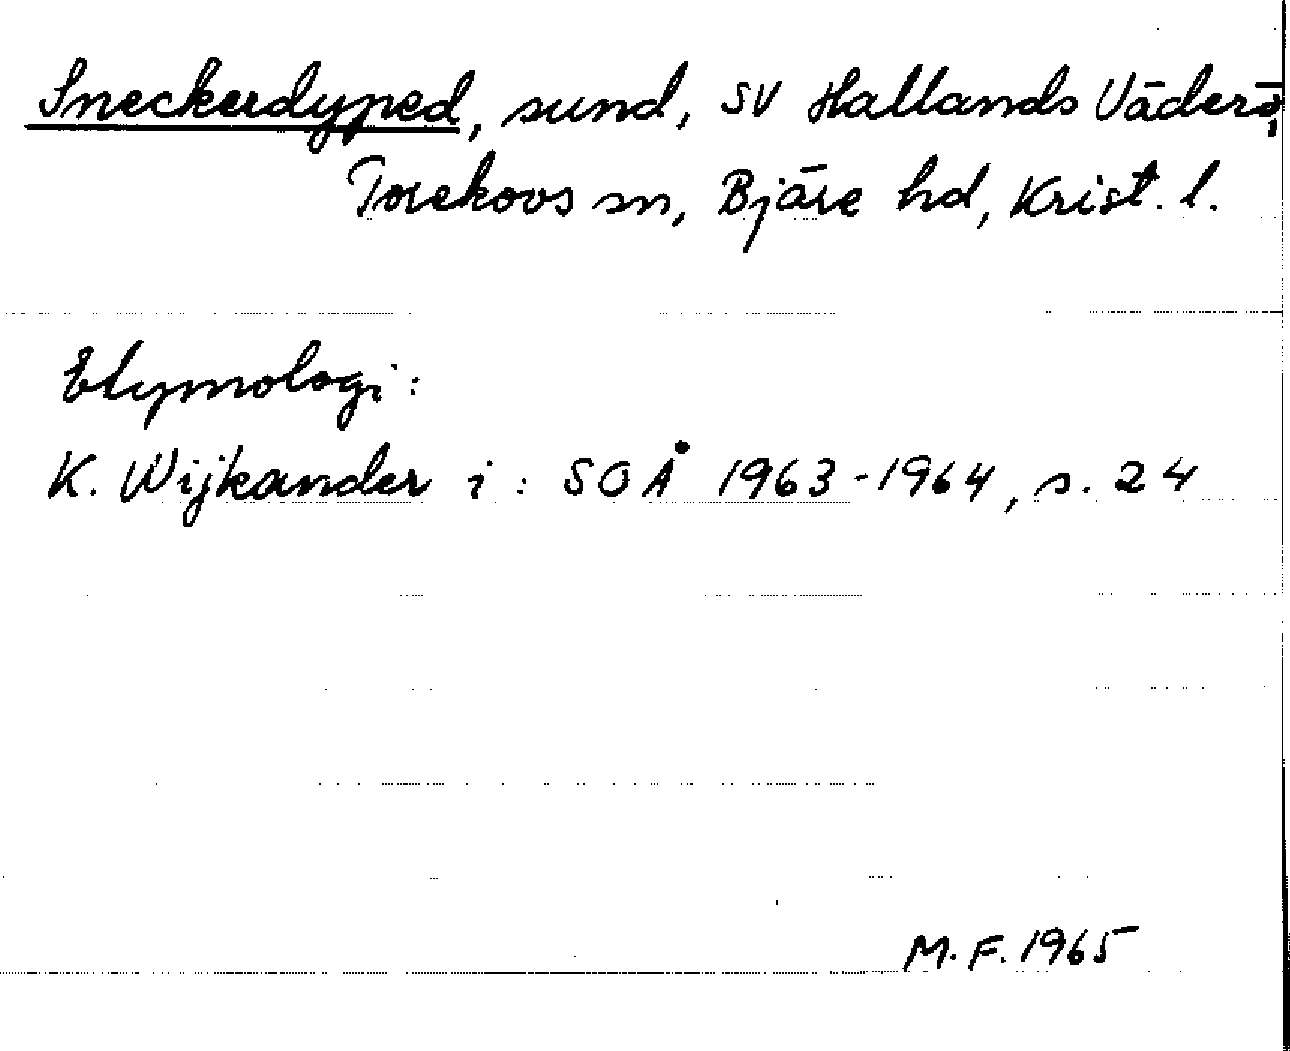 Sneckerdyped, sund, SV Hallands Väderö,
Torekovs sn, Bjäre hd, Krist. l.
Etymologi:
K. Wijkander i: SOÅ 1963-1964, s. 24
M.F. 1965